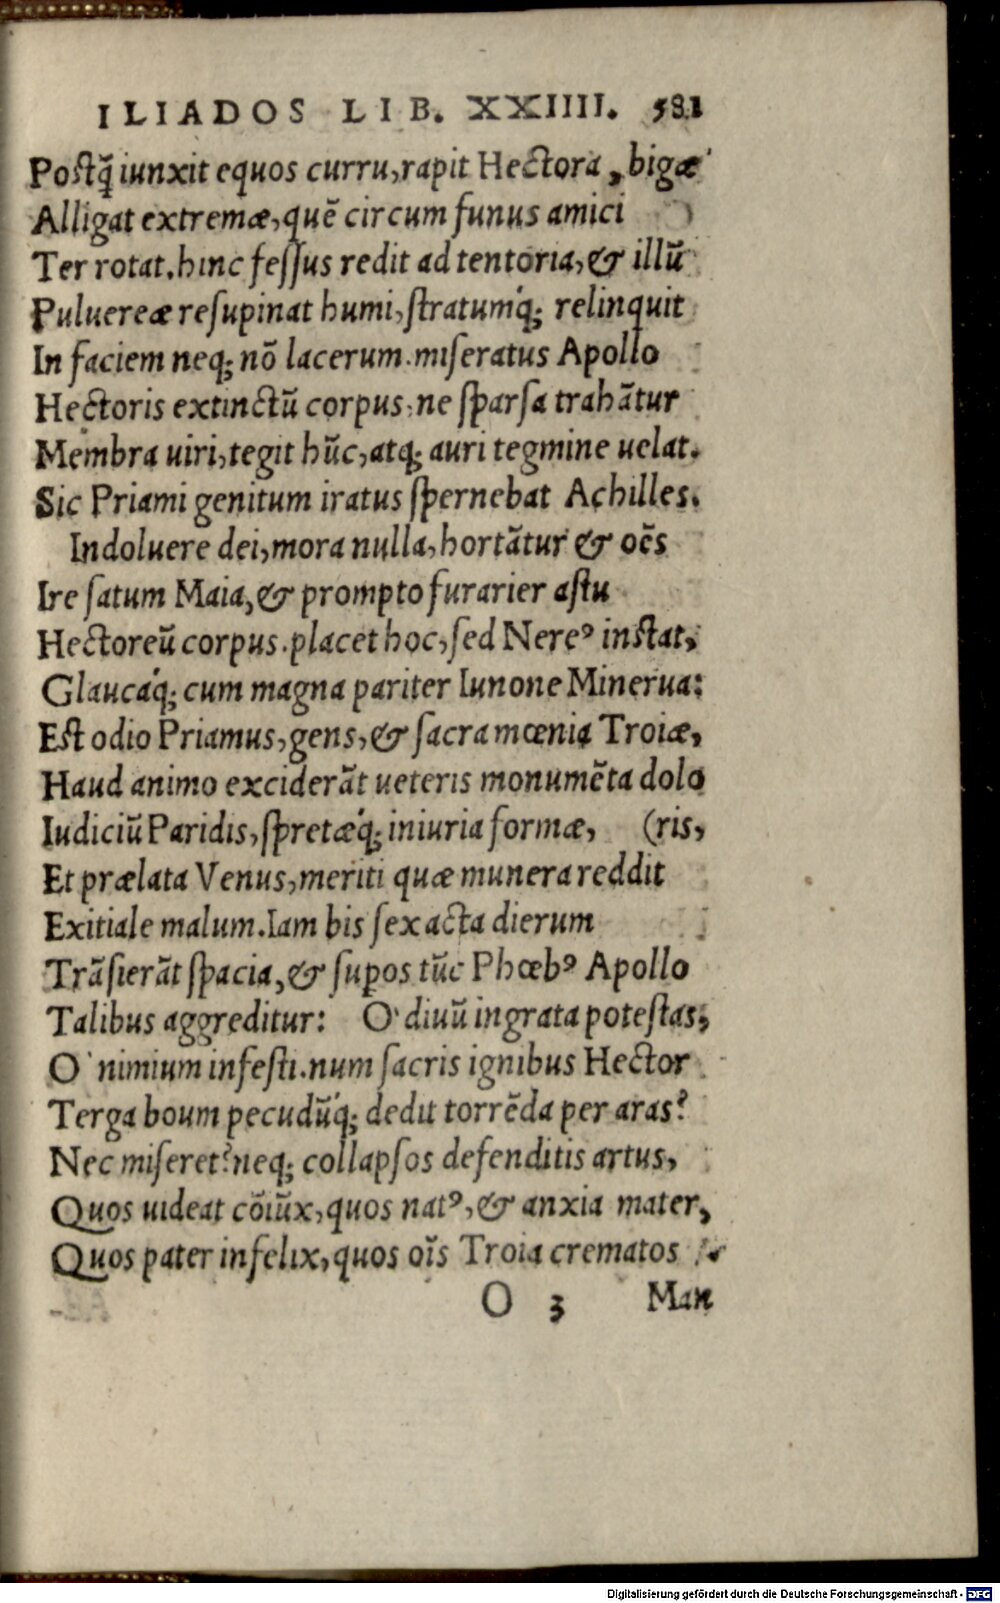 ILIADOS LIB. XXIIII. 581
Postq̃ iunxit equos curru, rapit Hectora, bigæ
Alligat extremæ, quẽ circum funus amici
Ter rotat. hinc fessus redit ad tentoria, & illũ
Puluereæ resupinat humi, stratumq́; relinquit
In faciem neq; nõ lacerum. miseratus Apollo
Hectoris extinctũ corpus, ne sparsa trahãtur
Membra uiri, tegit hũc, atq; auri tegmine uelat.
Sic Priami genitum iratus spernebat Achilles.
Indoluere dei, mora nulla, hortãtur & oẽs
Ire satum Maia, & prompto furarier astu
Hectoreũ corpus. placet hoc, sed Nereꝰ instat,
Glaucaq́; cum magna pariter Iunone Minerua:
Est odio Priamus, gens, & sacra mœnia Troiæ,
Haud animo exciderãt ueteris monumẽta dolo
Iudiciũ Paridis, spretæq́; iniuria formæ, (ris,
Et prælata Venus, meriti quæ munera reddit
Exitiale malum. Iam bis sex acta dierum
Trãsierãt spacia, & suꝑos tũc Phœbꝰ Apollo
Talibus aggreditur: O' diuũ ingrata potestas,
O' nimium infesti. num sacris ignibus Hector
Terga boum pecudũq́; dedit torrẽda per aras?
Nec miseret? neq; collapsos defenditis artus,
Quos uideat cõiũx, quos natꝰ, & anxia mater,
Quos pater infelix, quos oĩs Troia crematos
O 3 Man
Digitalisierung gefördert durch die Deutsche Forschungsgemeinschaft - DFG